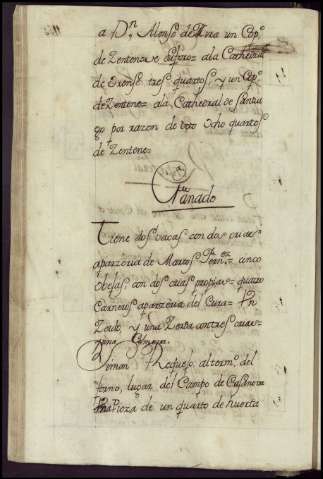 a Dn. Alonso de Aria un Cpo.
de Zenteno, ala Cathedral
de Orense tres quartos, y un Cpo.
de Zenteno ala Cathedral de Santia
go por razon de voto Ocho quartos
de Zenteno
Ganado
Tiene dos vacas con dos crias
aparzeria de Marcos Fernz. cinco
obejas con dos crias propias quatro
Carneros aparzeria del Cura
y una Zerda con tres crias
Simon Requejo, altermo. del
forno, lugar del Campo de Casanova
Una Pieza de un quarto de huerta